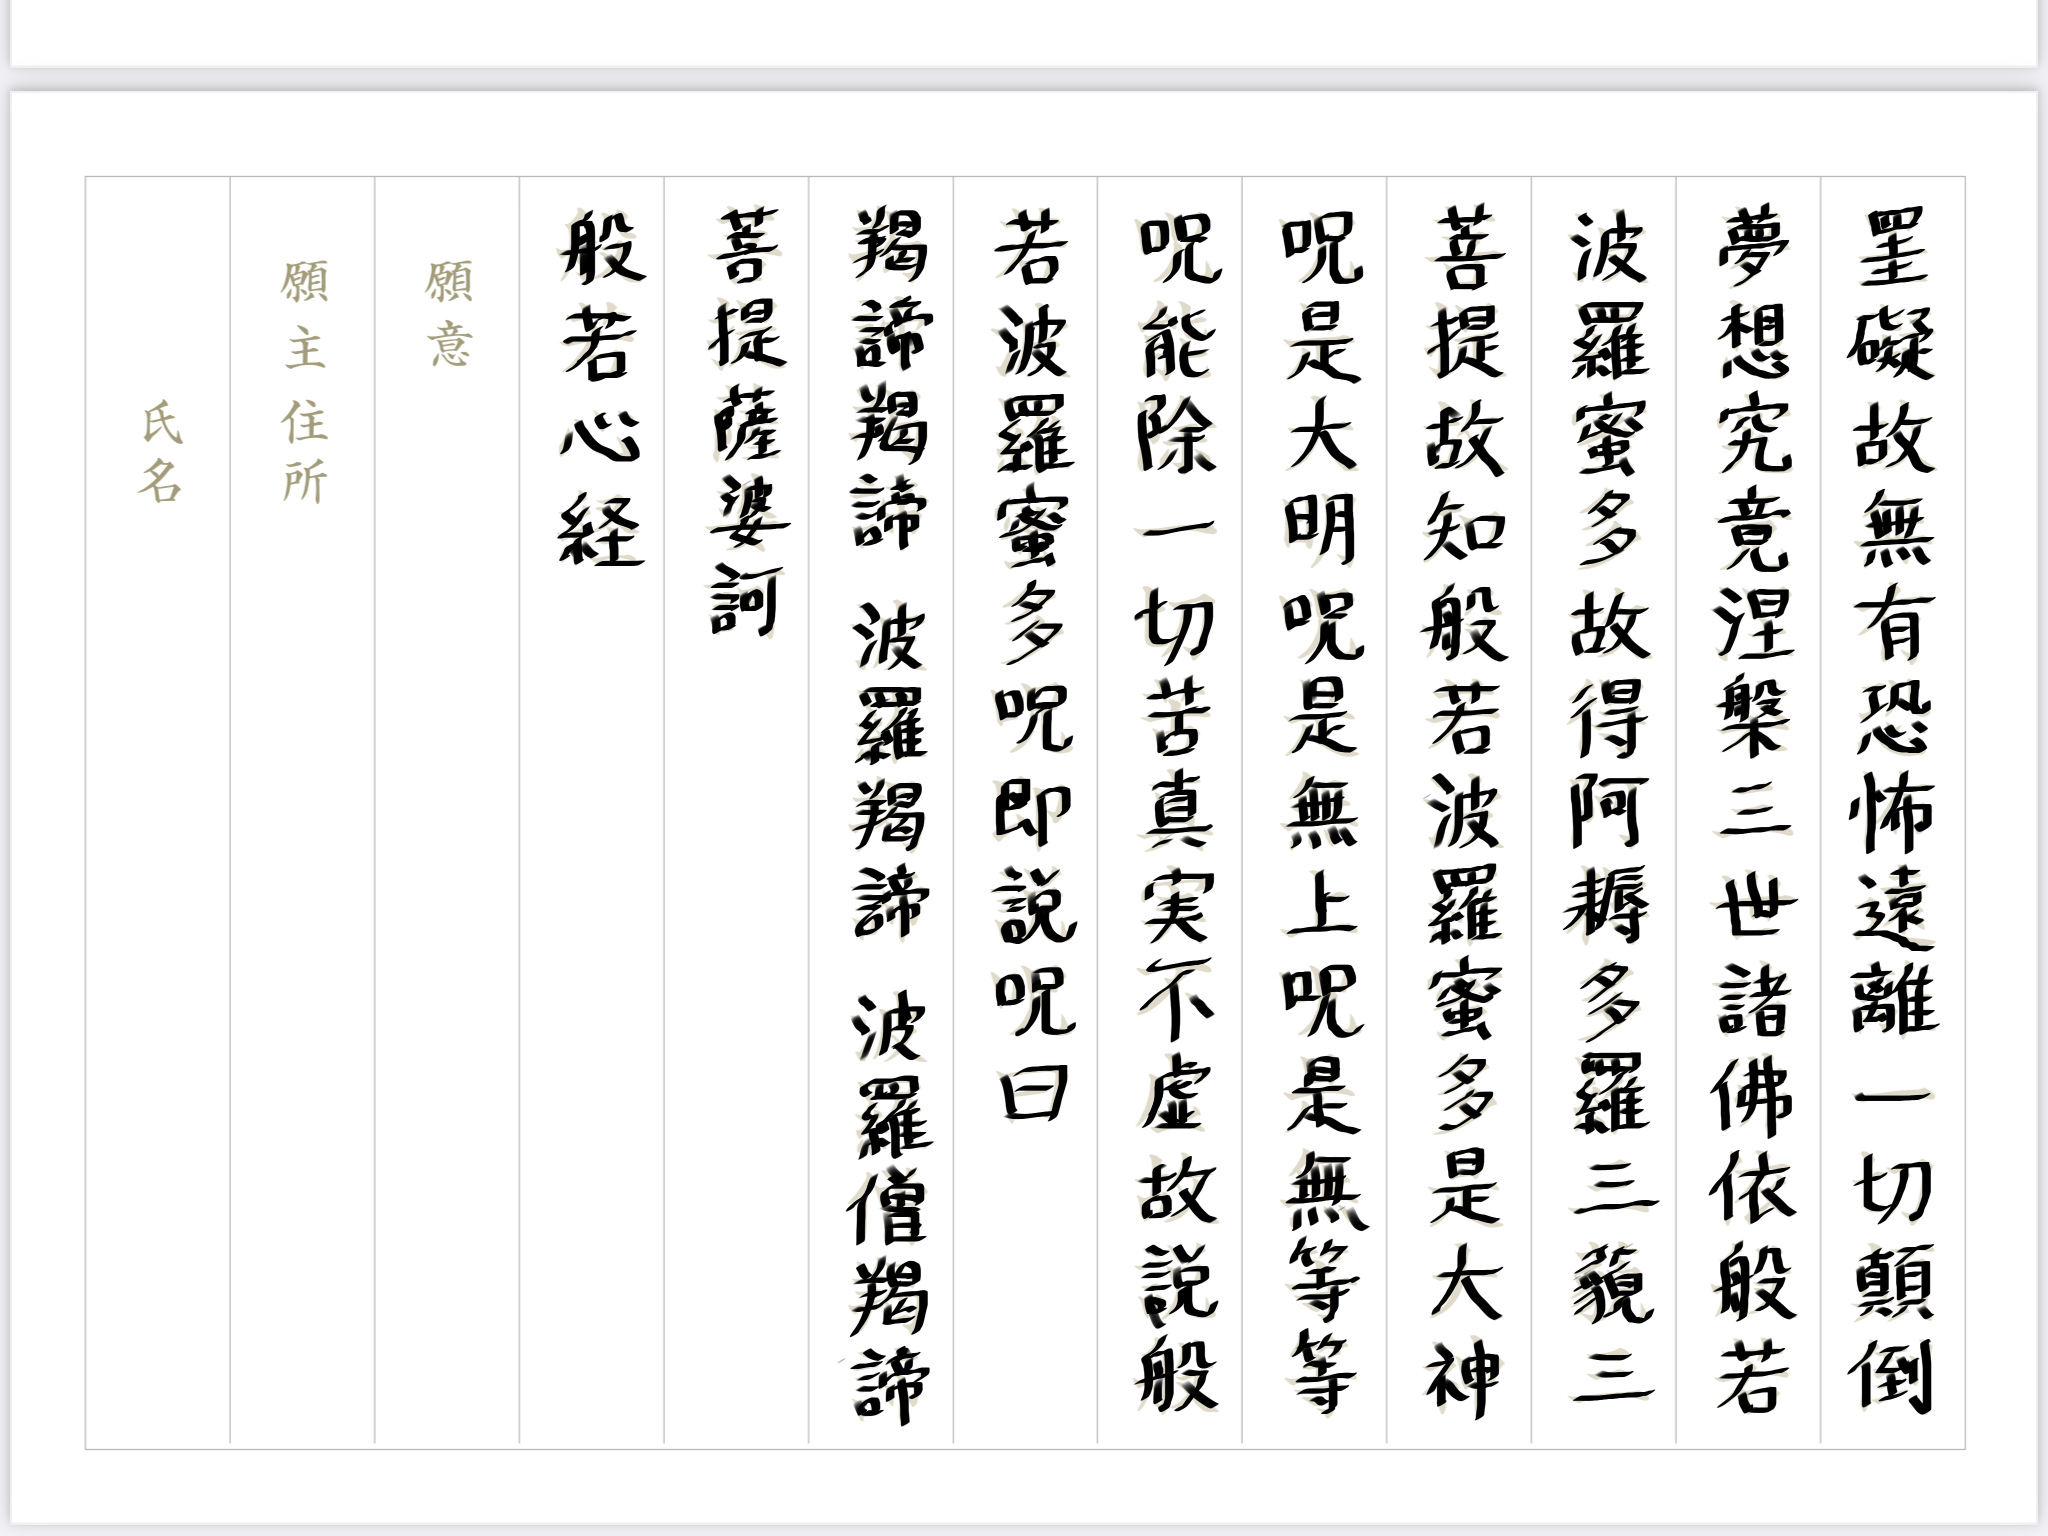 罣礙故無有恐怖遠離一切顛倒
夢想究竟涅槃三世諸佛依般若
波羅蜜多故得阿耨多羅三藐三
菩提故知般若波羅蜜多是大神
呪是大明呪是無上呪是無等等
呪能除一切苦真実不虚故説般
若波羅蜜多呪即説呪曰
羯諦羯諦 波羅羯諦 波羅僧羯諦
菩提薩婆訶
般若心経
願意
願主住所
氏名